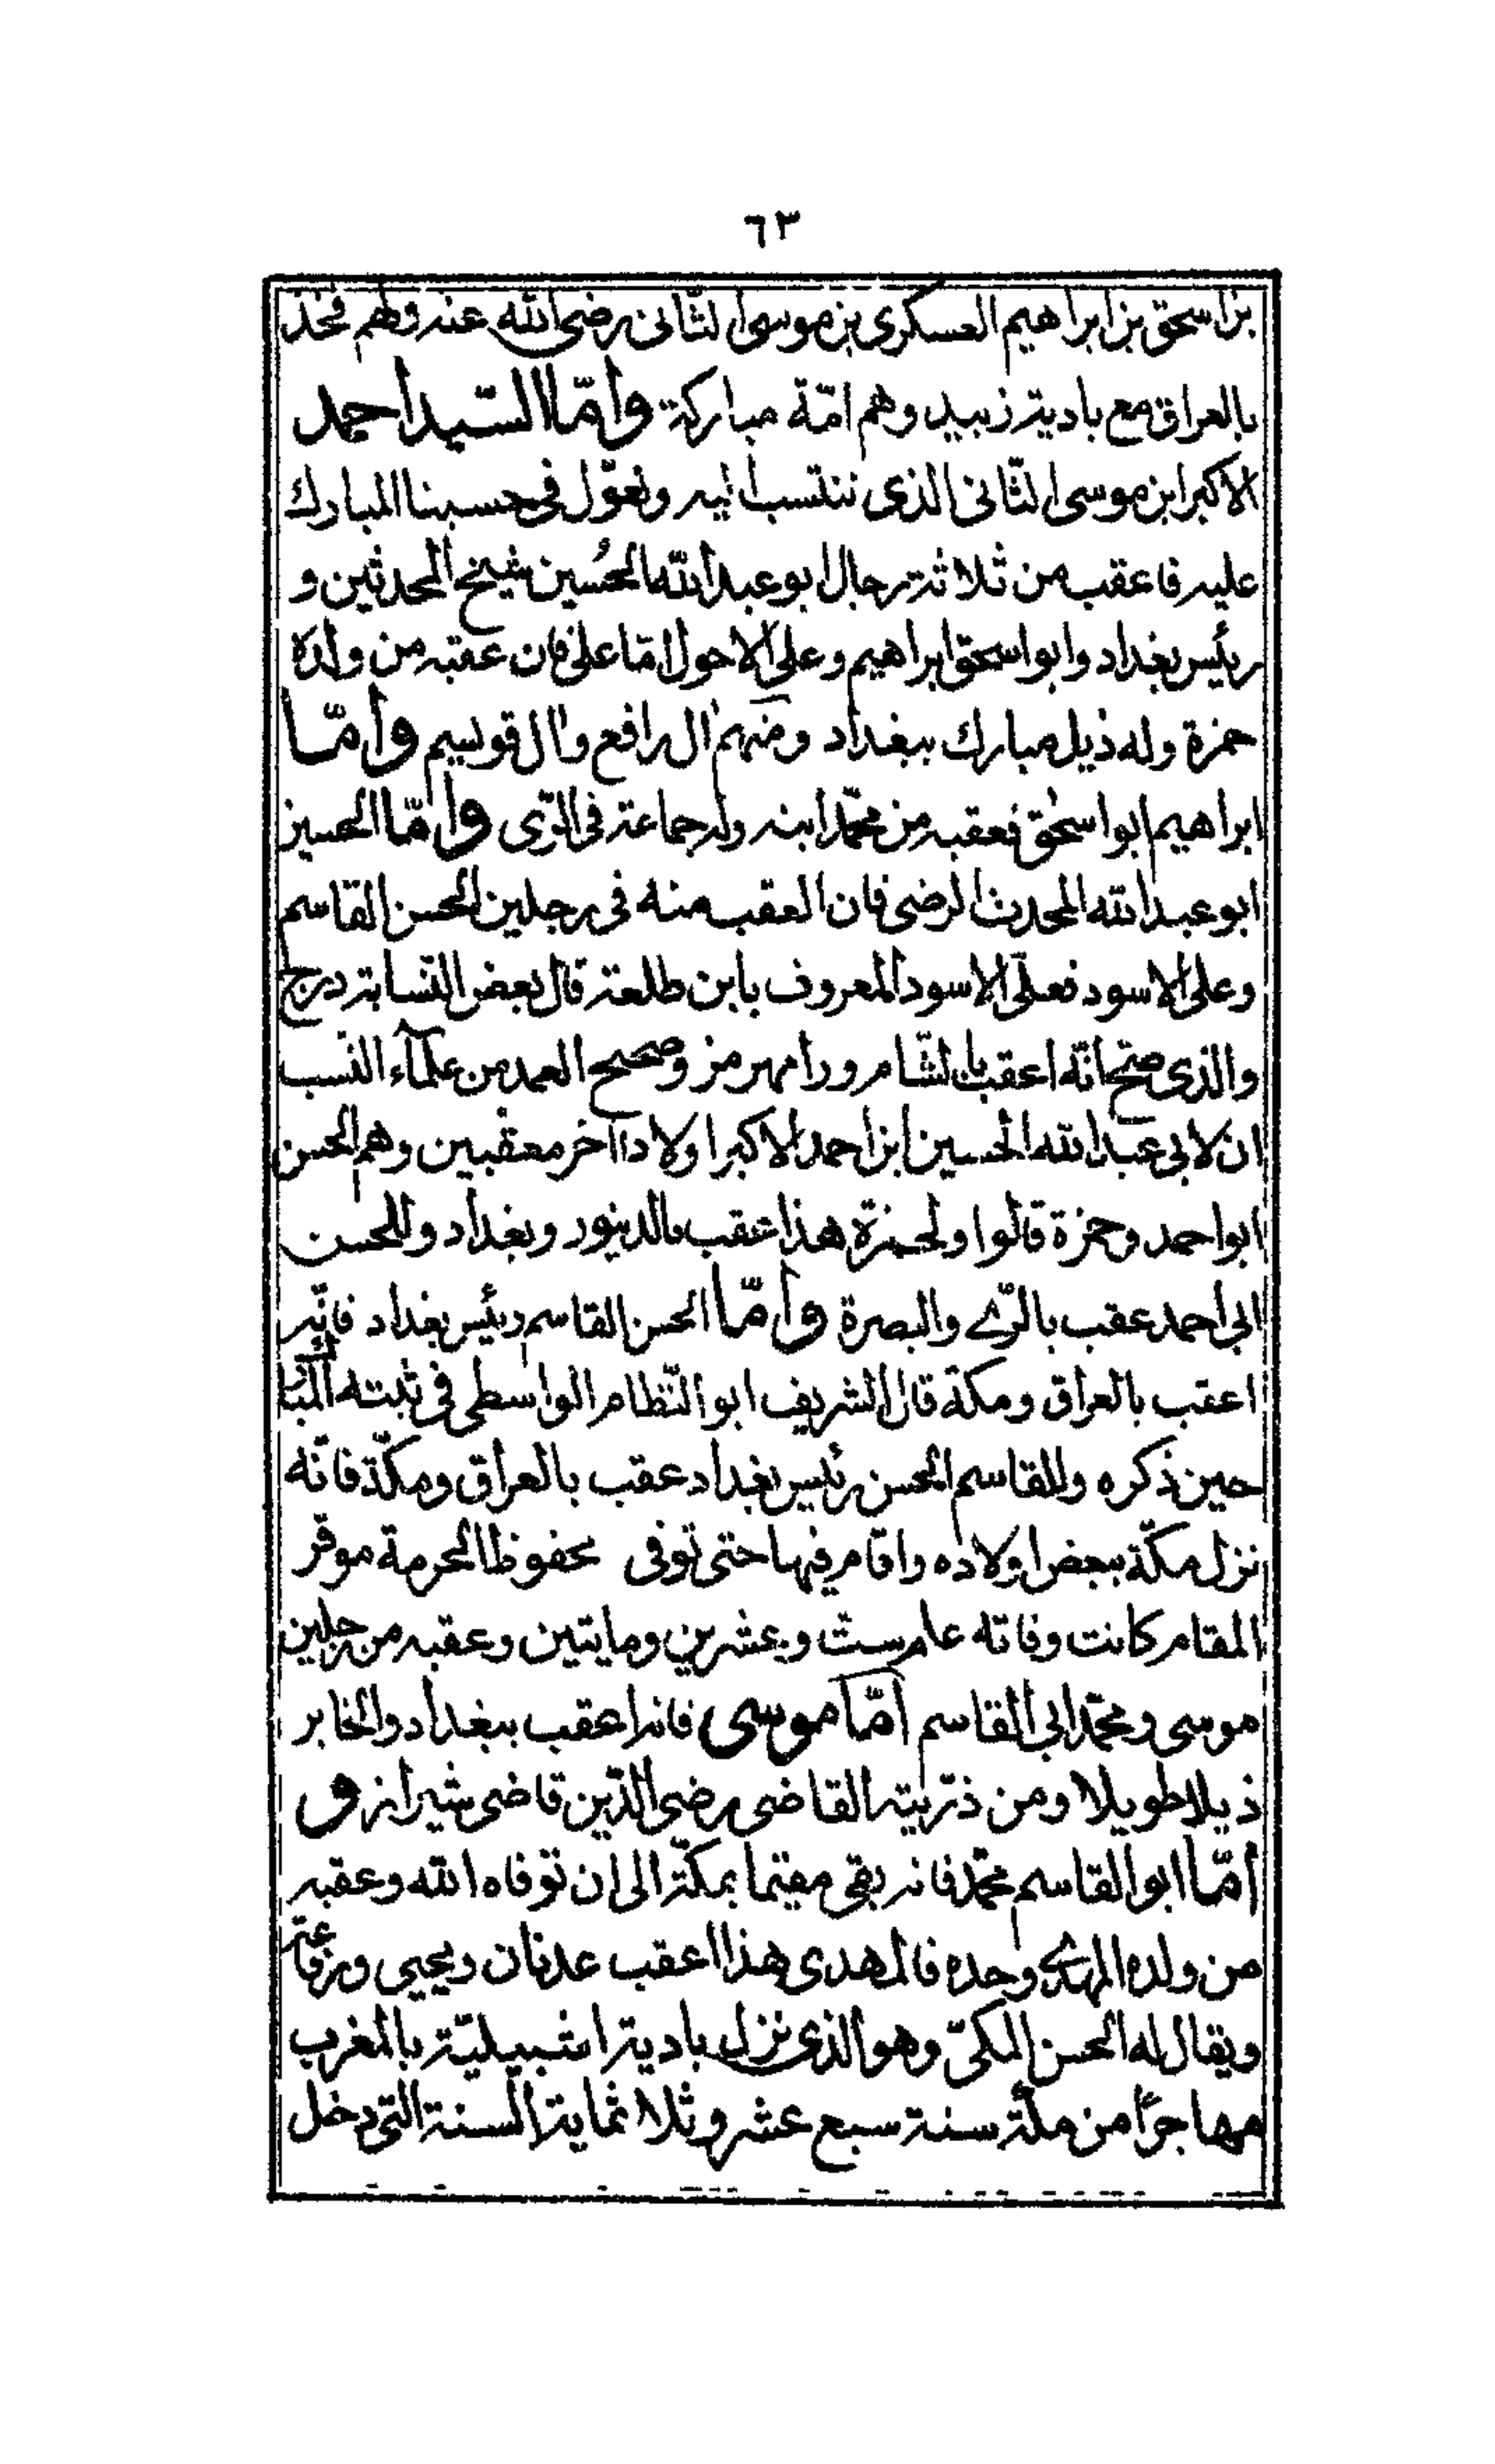 ٦٣
بن اسحق بن ابراهيم العسكرى بن موسى الثّانى رضى الله عنه ولهم فخذ
بالعراق مع بادية زبيد وهم امّة مباركة وامّا السّيد احمد
الاكبر ابن موسى الثّانى الذى ننتسب اليه ونعوّل فى حسبنا المبارك
عليه فاعقب من ثلاثة رجال ابو عبد الله الحُسين شيخ المحدثين و
رئيس بغداد وابو اسحق ابراهيم وعلى الاحول امّا على فان عقبه من ولده
حمزة وله ذيل مبارك ببغداد ومنهم ال رافع وال قوسيم وامّا
ابراهيم ابو اسحق فعقبه من محمّد ابنه وله جماعة فى الرّى وامّا الحسين
ابو عبد الله المحدث الرضى فان العقب منه فى رجلين الحسن القاسم
وعلى الاسود فعلىّ الاسود المعروف بابن طلعة قال بعض النّسابة درج
والذى صحّ انّه اعقب بالشّام ورامهرمز وصحيح العمد من علمآء النّسب
ان لابى عبد الله الحسين ابن احمد الاكبر اولادا اخر معقبين وهم الحسن
ابو احمد وحمزة قالوا ولحمزة هذا عقب بالدينور وبغداد وللحسن
ابى احمد عقب بالرّى والبصرة وامّا الحسن القاسم رئيس بغداد فانّه
اعقب بالعراق ومكة قال الشريف ابو النّظام الواسطى فى ثبته المبارك
حين ذكره وللقاسم الحسن رئيس بغداد عقب بالعراق ومكّة فانّه
نزل مكّة ببعض اولاده واقام فيها حتى توفى محفوظ الحرمة موقر
المقام كانت وفاته عام ست وعشرين ومايتين وعقبه من رجلين
موسى ومحمّد ابى القاسم امّا موسى فانه اعقب ببغداد والخابر
ذيلا طويلا ومن ذرّيته القاضى رضى الدّين قاضى شيراز و
امّا ابو القاسم محمّد فانه بقى مقيما بمكّة الى ان توفاه الله وعقبه
من ولده المهدى وحده فالمهدى هذا اعقب عدنان ويحيى ورفاعة
ويقال له الحسن المكىّ وهو الذى نزل بادية اشبيليّة بالمغرب
مهاجرًا من مكّة سنة سبع عشر وثلاثماية السنة التى دخل